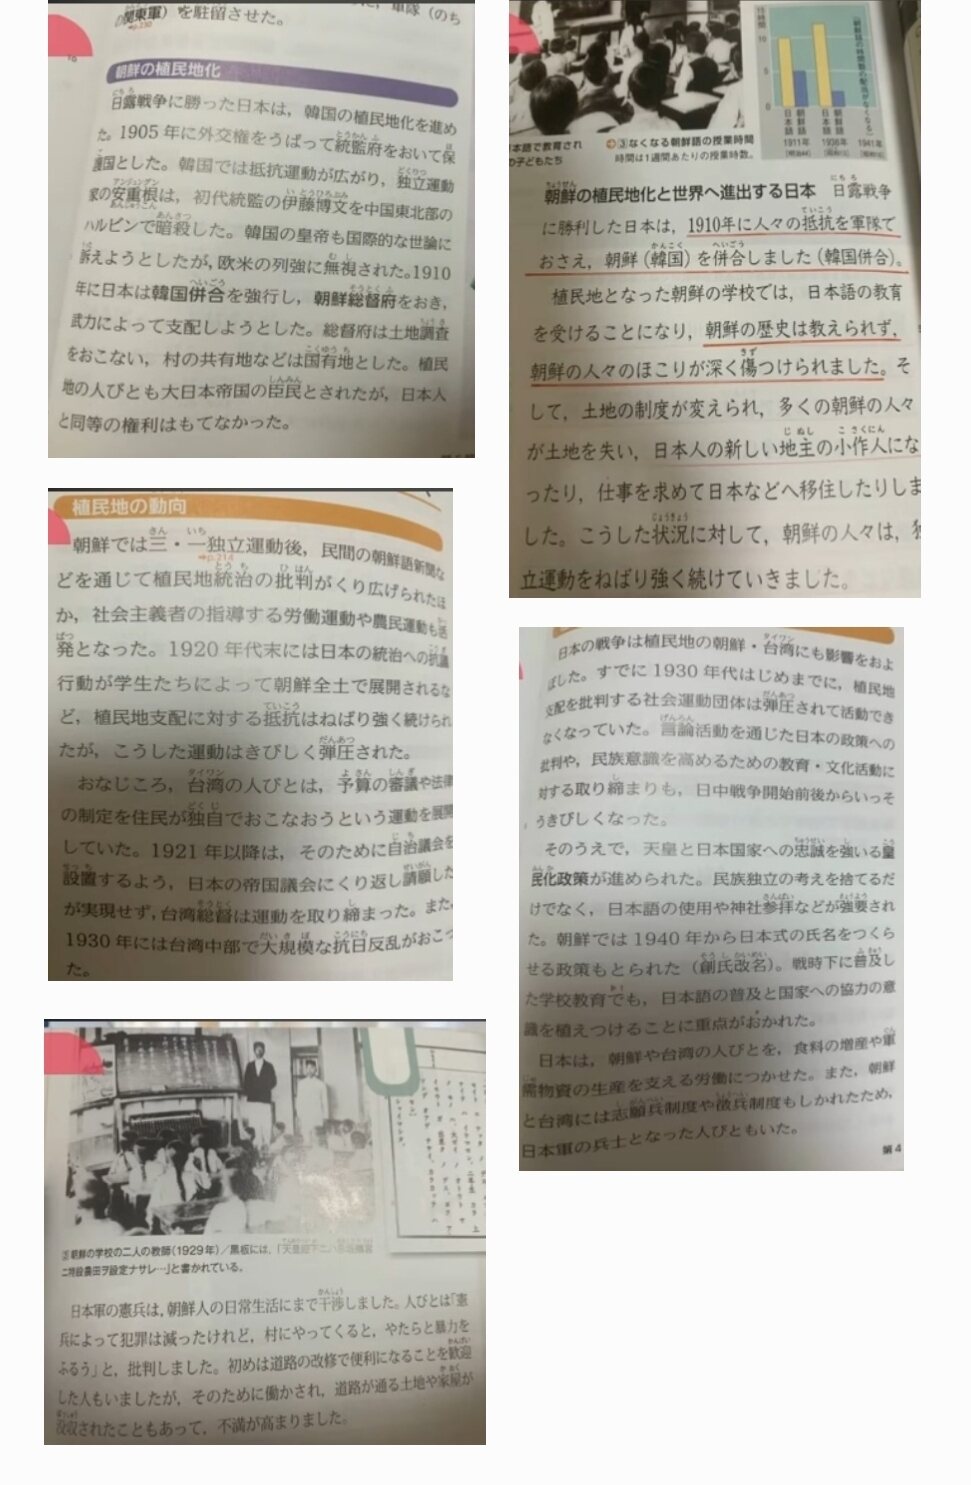 関東軍）を駐留させた。
軍隊（のち
朝鮮の植民地化
日露戦争に勝った日本は，韓国の植民地化を進め
た。1905年に外交権をうばって統監府をおいて保
護国とした。韓国では抵抗運動が広がり，独立運動
家の安重根は，初代統監の伊藤博文を中国東北部の
ハルビンで暗殺した。韓国の皇帝も国際的な世論に
訴えようとしたが，欧米の列強に無視された。1910
年に日本は韓国併合を強行し，朝鮮総督府をおき，
武力によって支配しようとした。総督府は土地調査
をおこない，村の共有地などは国有地とした。植民
地の人びとも大日本帝国の臣民とされたが，日本人
と同等の権利はもてなかった。
植民地の動向
朝鮮では三・一独立運動後，民間の朝鮮語新聞な
⇒p.214
どを通じて植民地統治の批判がくり広げられたほ
か，社会主義者の指導する労働運動や農民運動も活
発となった。1920年代末には日本の統治への抗議
行動が学生たちによって朝鮮全土で展開されるな
ど，植民地支配に対する抵抗はねばり強く続けられ
たが，こうした運動はきびしく弾圧された。
おなじころ，台湾の人びとは，予算の審議や法律
の制定を住民が独自でおこなおうという運動を展開
していた。1921年以降は，そのために自治議会を
設置するよう，日本の帝国議会にくり返し請願した
が実現せず，台湾総督は運動を取り締まった。また，
1930年には台湾中部で大規模な抗日反乱がおこっ
た。
②朝鮮の学校の二人の教師（1929年）／黒板には，「天皇陛下
ニ特設農田ヲ設定ナサレ…」と書かれている。
日本軍の憲兵は，朝鮮人の日常生活にまで干渉しました。人びとは「憲
兵によって犯罪は減ったけれど，村にやってくると，やたらと暴力を
ふるう」と，批判しました。初めは道路の改修で便利になることを歓迎
した人もいましたが，そのために働かされ，道路が通る土地や家屋が
没収されたこともあって，不満が高まりました。
15時間
10
5
0
日本語
朝鮮語
日本語
朝鮮語
1911年
1938年
1941年
本語で教育され
の子どもたち
③なくなる朝鮮語の授業時間
時間は1週間あたりの授業時数。
朝鮮の植民地化と世界へ進出する日本　日露戦争
に勝利した日本は，1910年に人々の抵抗を軍隊で
おさえ，朝鮮（韓国）を併合しました（韓国併合）。
植民地となった朝鮮の学校では，日本語の教育
を受けることになり，朝鮮の歴史は教えられず，
朝鮮の人々のほこりが深く傷つけられました。そ
して，土地の制度が変えられ，多くの朝鮮の人々
が土地を失い，日本人の新しい地主の小作人にな
ったり，仕事を求めて日本などへ移住したりしま
した。こうした状況に対して，朝鮮の人々は，独
立運動をねばり強く続けていきました。
日本の戦争は植民地の朝鮮・台湾にも影響をおよ
ぼした。すでに1930年代はじめまでに，植民地
支配を批判する社会運動団体は弾圧されて活動でき
なくなっていた。言論活動を通じた日本の政策への
批判や，民族意識を高めるための教育・文化活動に
対する取り締まりも，日中戦争開始前後からいっそ
うきびしくなった。
そのうえで，天皇と日本国家への忠誠を強いる皇
民化政策が進められた。民族独立の考えを捨てるだ
けでなく，日本語の使用や神社参拝などが強要され
た。朝鮮では1940年から日本式の氏名をつくら
せる政策もとられた（創氏改名）。戦時下に普及し
た学校教育でも，日本語の普及と国家への協力の意
識を植えつけることに重点がおかれた。
日本は，朝鮮や台湾の人びとを，食料の増産や軍
需物資の生産を支える労働につかせた。また，朝鮮
と台湾には志願兵制度や徴兵制度もしかれたため，
日本軍の兵士となった人びともいた。
第4